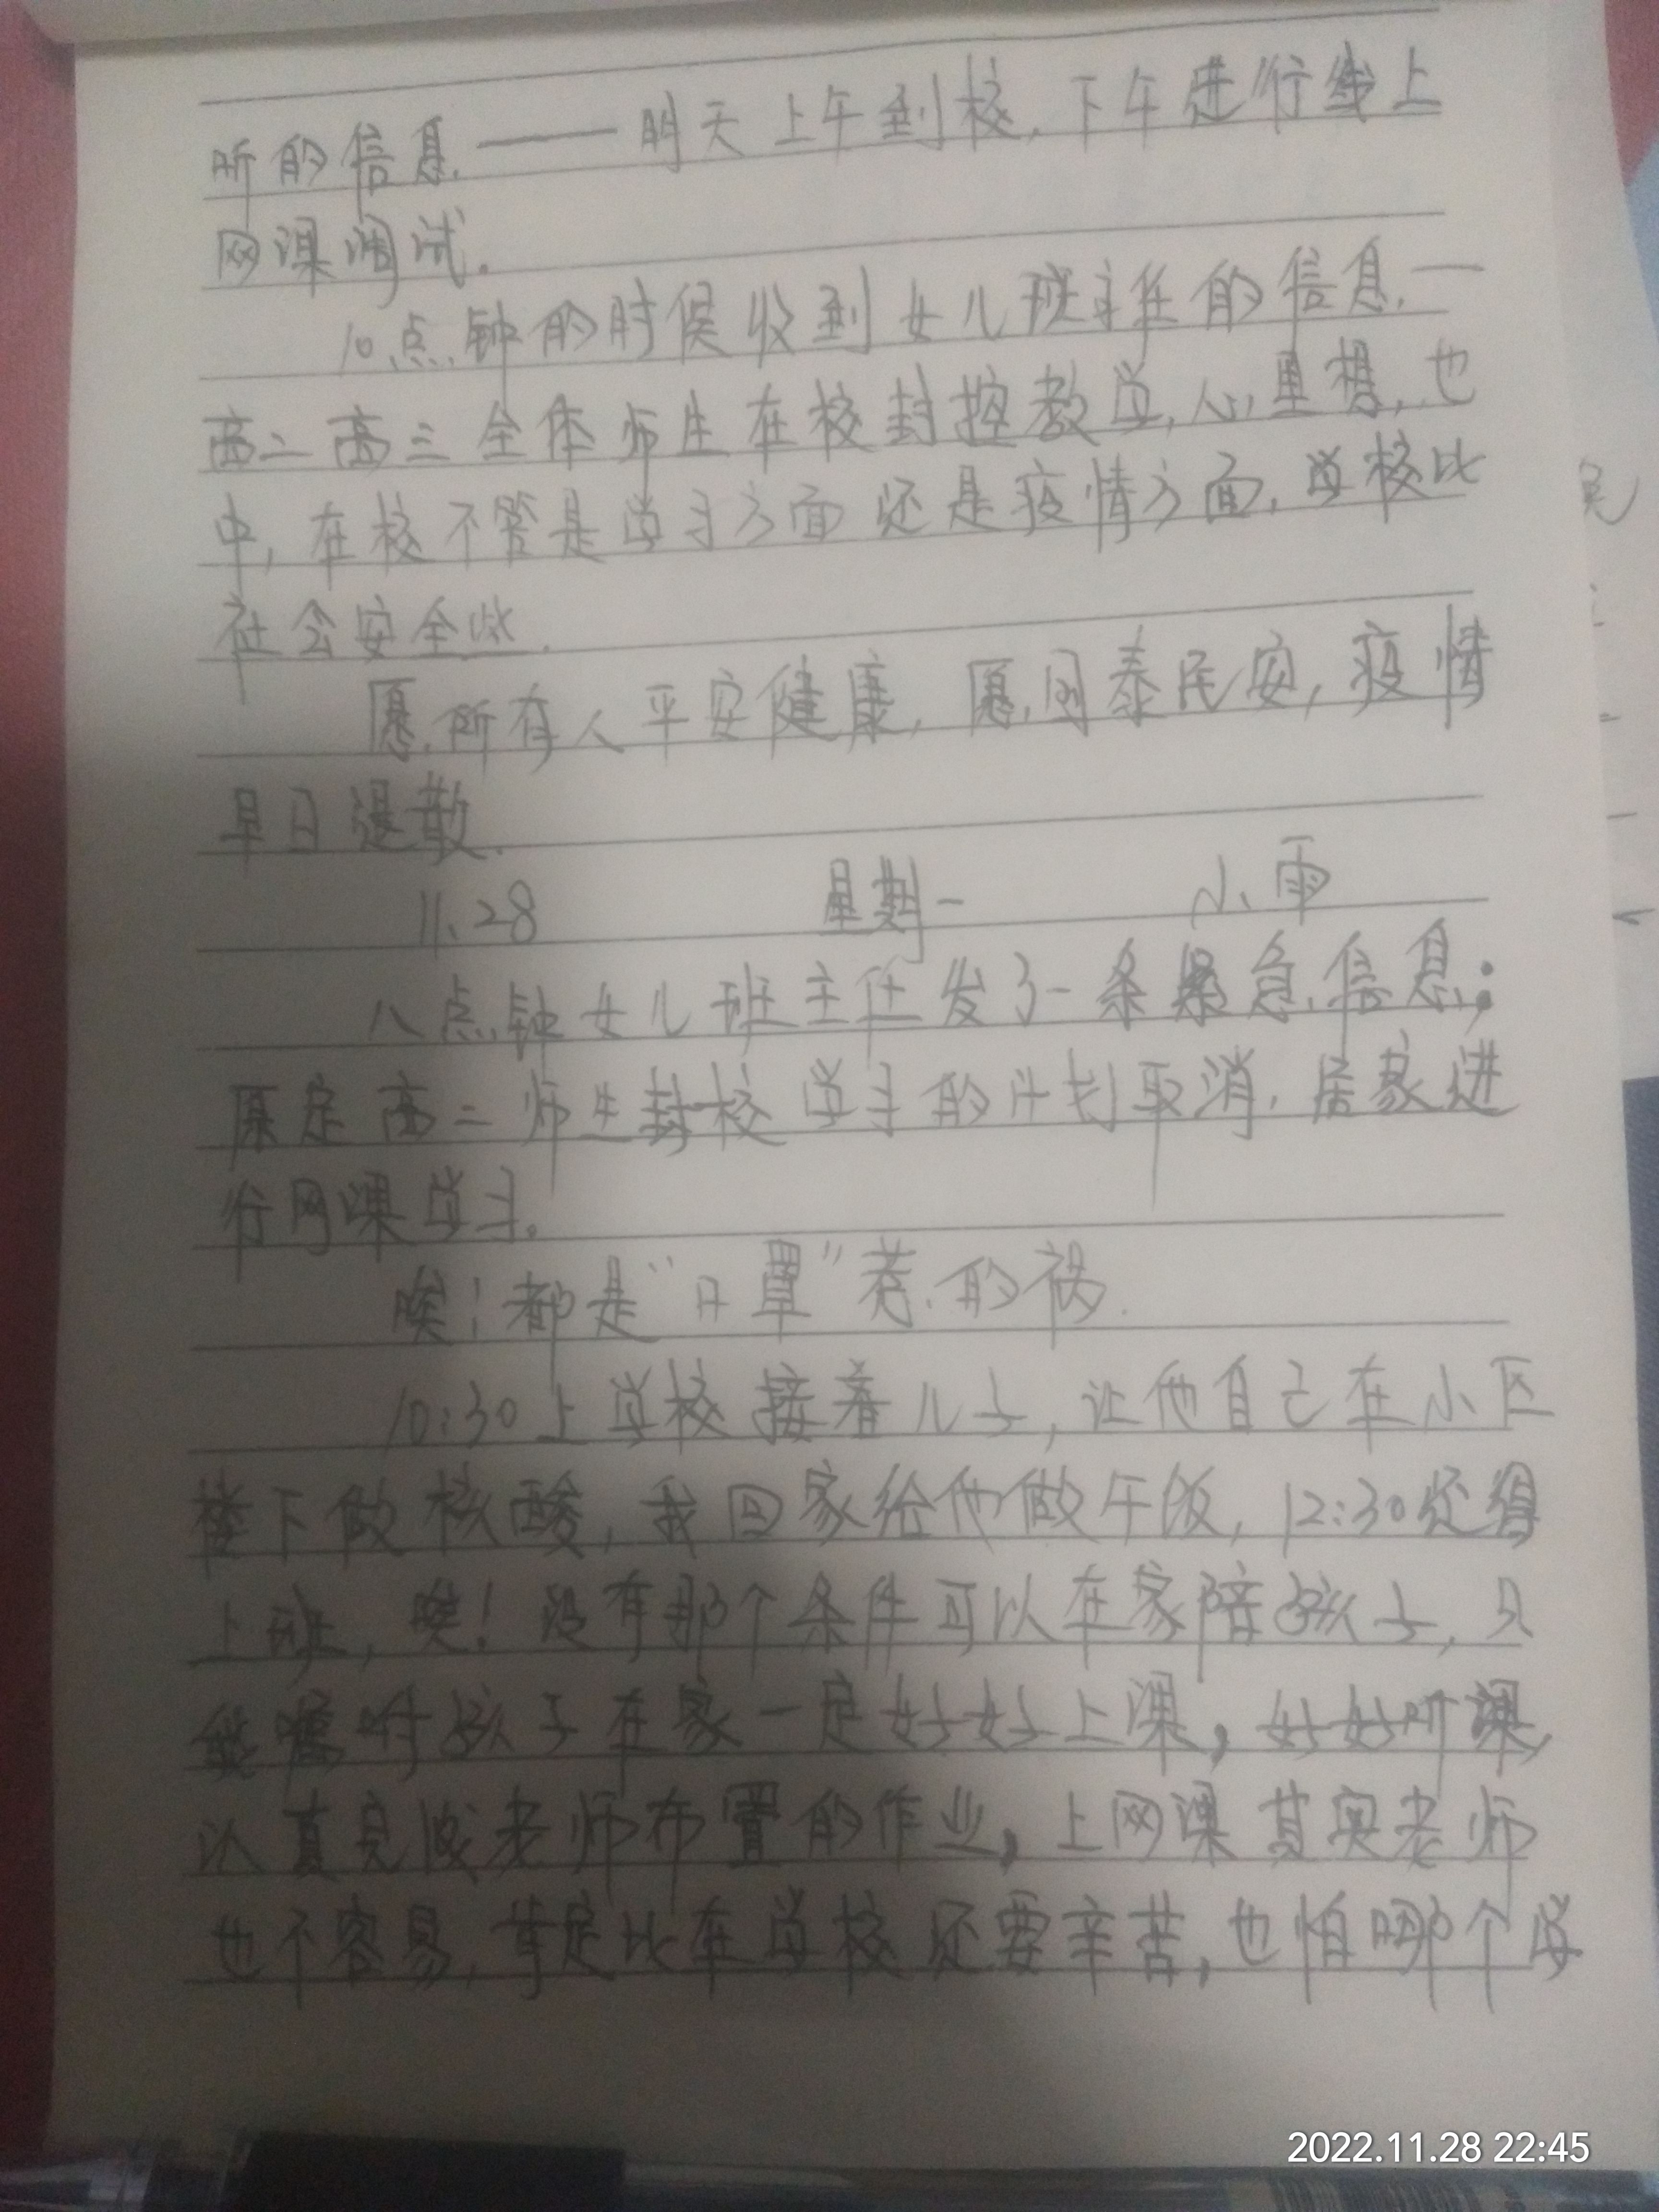 所的信息.——明天上午到校,下午进行线上
网课调试.
10点钟的时候收到女儿班主任的信息.一
高二高三全体师生在校封控教学,心里想,也
中,在校不管是学习方面还是疫情方面,学校比
社会安全些.
愿所有人平安健康,愿国泰民安,疫情
早日退散.
11、28 星期一 小雨
八点钟女儿班主任发了一条紧急信息:
原定高二师生封校学习的计划取消,居家进
行网课学习。
唉!都是“口罩”惹的祸.
10:30上学校接着儿子,让他自己在小区
楼下做核酸,我回家给他做午饭,12:30还得
上班,唉!没有那个条件可以在家陪孩子,只
能嘱咐孩子在家一定好好上课,好好听课,
认真完成老师布置的作业,上网课其实老师
也不容易,肯定比在学校还要辛苦,也怕哪个学
2022.11.28 22:45